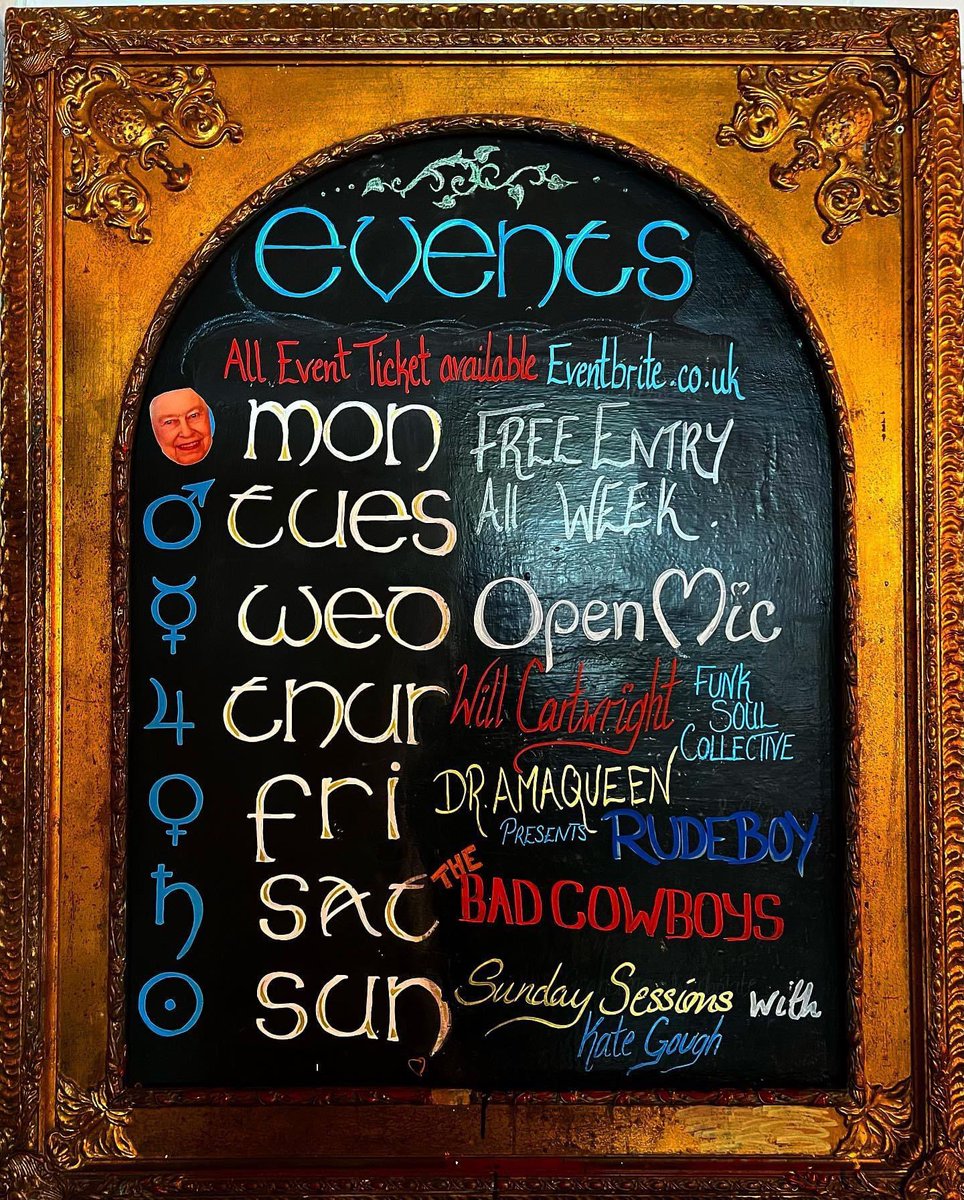 events
All Event Ticket available Eventbrite.co.uk
mon FREE ENTRY
tues All WEEK.
wed Open Mic
thur Will Cartwright FUNK SOUL COLLECTIVE
fri DRAMAQUEEN
PRESENTS RUDEBOY
sat THE BAD COWBOYS
sun Sunday Sessions with
Kate Gough